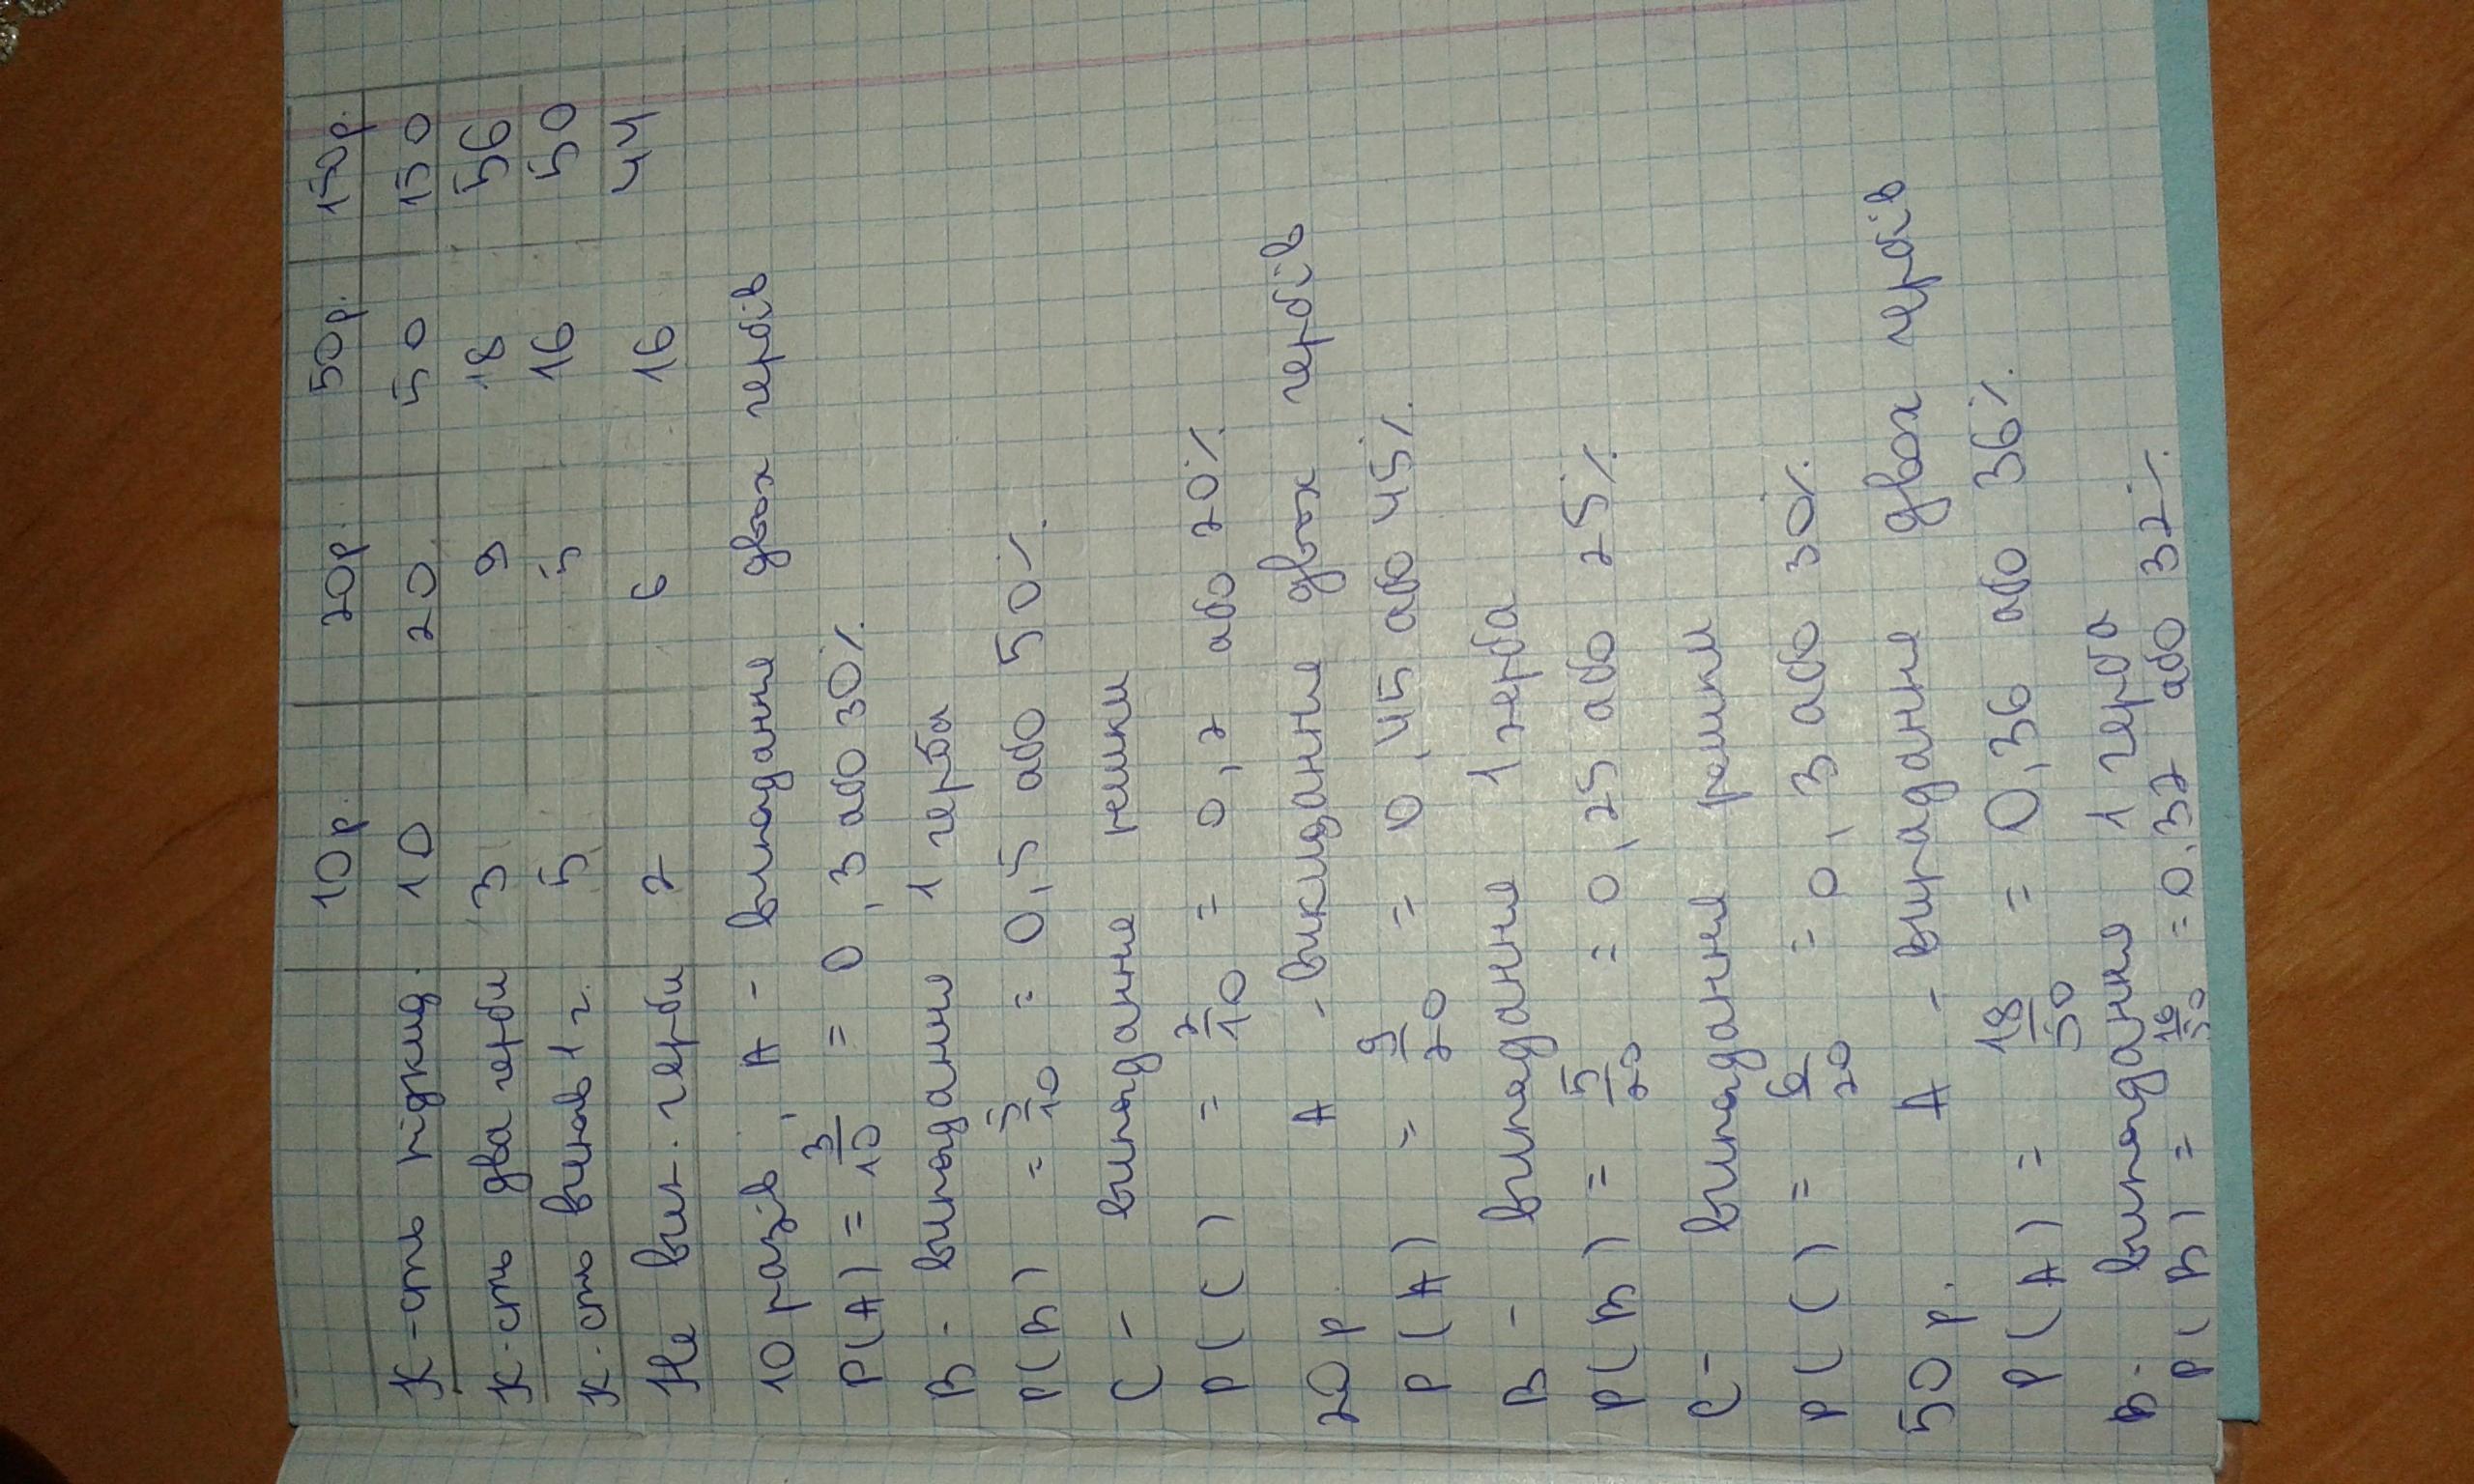 10р. 20р. 50р. 150р.
К-сть підкид. 10 20 50 150
К-сть два герби 3 9 18 56
К-сть випав 1 г. 5 5 16 50
Не вип. герби 2 6 16 44
10 разів, А - випадання двох гербів
P(A) = 3/10 = 0,3 або 30%
B - випадання 1 герба
P(B) = 5/10 = 0,5 або 50%.
C - випадання решки
P(C) = 2/10 = 0,2 або 20%.
20 р. А - викидання двох гербів
P(A) = 9/20 = 0,45 або 45%.
B - випадання 1 герба
P(B) = 5/20 = 0,25 або 25%.
C - випадання решки
P(C) = 6/20 = 0,3 або 30%.
50 р. А - випадання двох гербів
P(A) = 18/50 = 0,36 або 36%.
B - випадання 1 герба
P(B) = 16/50 = 0,32 або 32%.